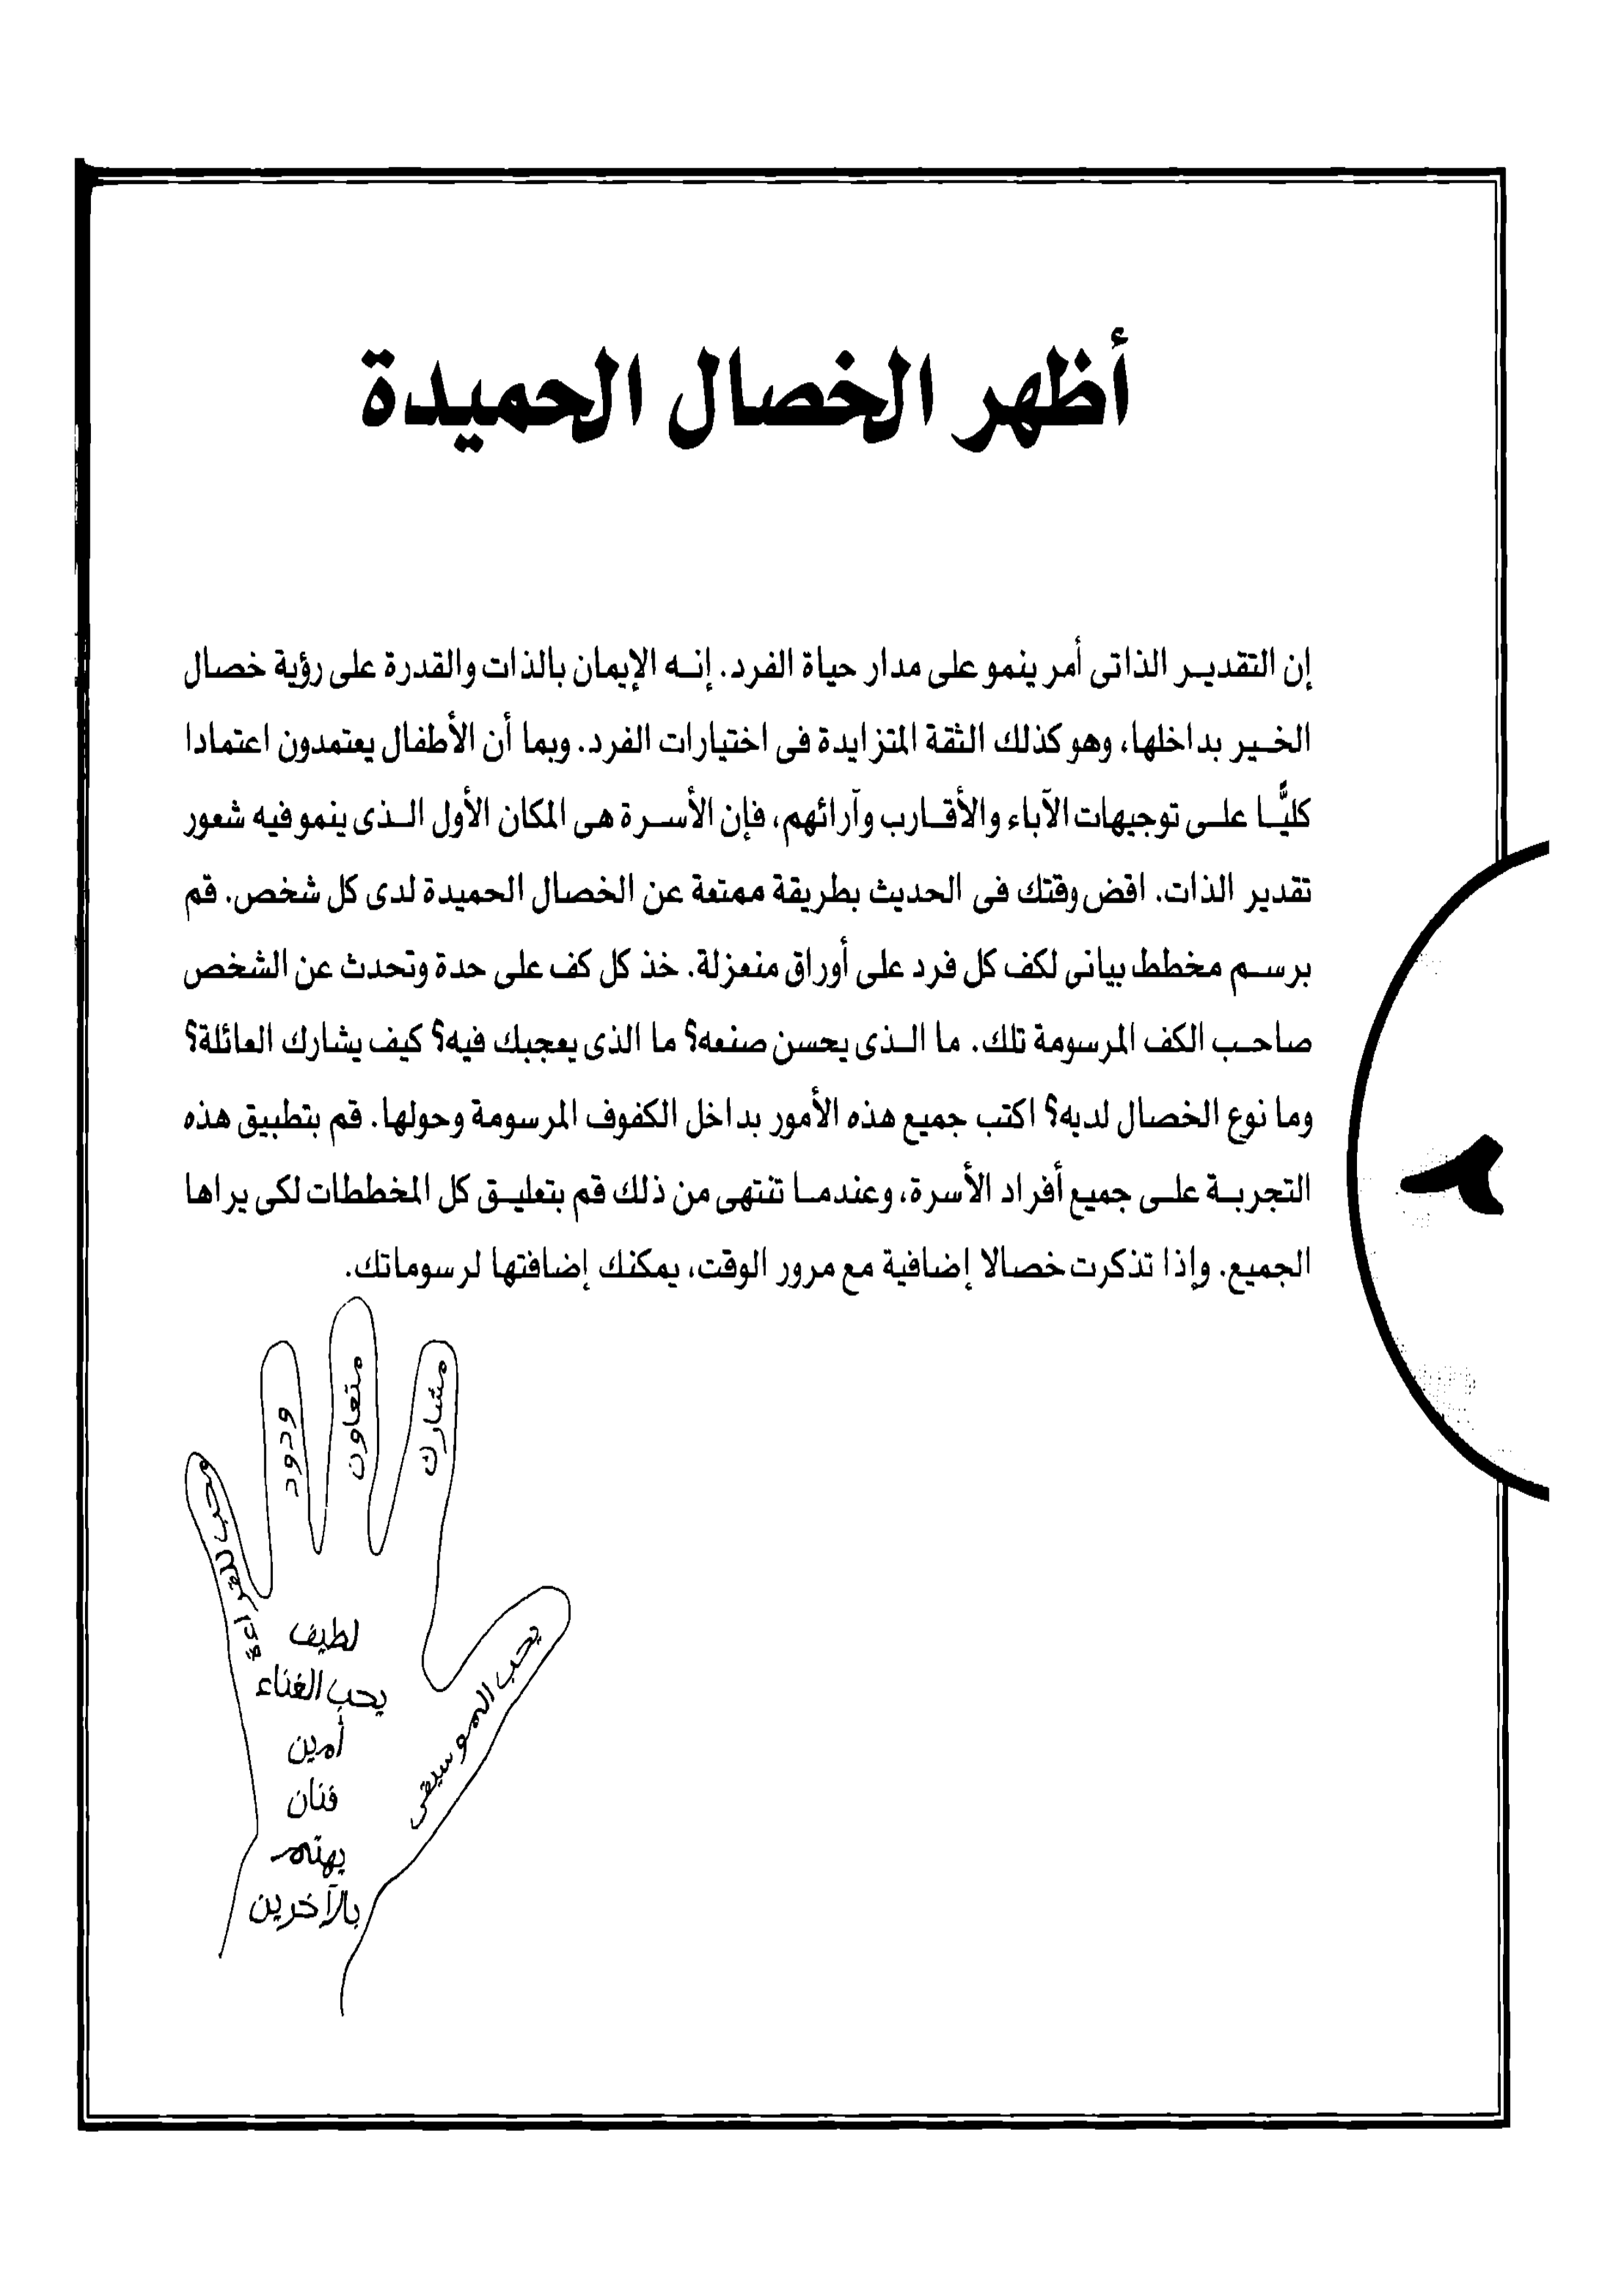 أظهر الخصال الحميدة
إن التقديـر الذاتى أمر ينمو على مدار حياة الفرد. إنـه الإيمان بالذات والقدرة على رؤية خصال
الخـير بداخلها، وهو كذلك الثقة المتزايدة فى اختيارات الفرد. وبما أن الأطفال يعتمدون اعتمادا
كليًّـا علـى توجيهات الآباء والأقـارب وآرائهم، فإن الأسـرة هى المكان الأول الـذى ينمو فيه شعور
تقدير الذات. اقض وقتك فى الحديث بطريقة ممتعة عن الخصال الحميدة لدى كل شخص. قم
برسـم مخطط بيانى لكف كل فرد على أوراق منعزلة. خذ كل كف على حدة وتحدث عن الشخص
صاحـب الكف المرسومة تلك. ما الـذى يحسن صنعه؟ ما الذى يعجبك فيه؟ كيف يشارك العائلة؟
وما نوع الخصال لديه؟ اكتب جميع هذه الأمور بداخل الكفوف المرسومة وحولها. قم بتطبيق هذه
التجربـة علـى جميع أفراد الأسرة، وعندمـا تنتهى من ذلك قم بتعليـق كل المخططات لكى يراها
الجميع. وإذا تذكرت خصالا إضافية مع مرور الوقت، يمكنك إضافتها لرسوماتك.
٢
مشارك
متعاون
ودود
محب للقراءة
يحب الموسيقى
لطيف
يحب الغناء
أمين
فنان
يهتم
بالآخرين